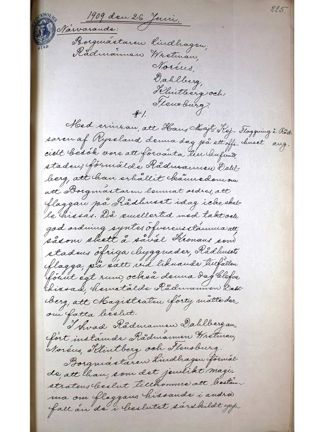 1909 den 26 Juni.
225.
Närvarande:
Borgmästaren Lindhagen,
Rådmännen Wretman,
Noréus,
Dahlberg,
Klintberg och
Flensburg.
§ 1.
Med erinran att Hans Maj:t Kej-
saren af Ryssland denna dag på ett offi-
Flaggning å Råd-
huset ang.
ciellt besök vore att förvänta till hufvud-
staden, förmälde Rådmannen Dahl-
berg, att han erhållit kännedom om
att Borgmästaren lemnat order, att
flaggan på Rådhuset idag icke skul-
le hissas. Då emellertid med takt och
god ordning syntes öfverensstämma att
såsom skett å såväl Kronans som
stadens öfriga byggnader, Rådhusets
flagga, på sätt vid liknande tillfällen
förut egt rum, också denna dag blefve
hissad, hemstälde Rådmannen Dahl-
berg, att Magistraten härom måtte
fatta beslut.
I hvad Rådmannen Dahlberg an-
fört instämde Rådmännen Wretman,
Noréus, Klintberg och Flensburg.
Borgmästaren Lindhagen förmäl-
de, att han, som det jemlikt magi-
stratens beslut tillkomme att bestäm-
ma om flaggans hissande i andra
fall än de i beslutet särskildt upp-